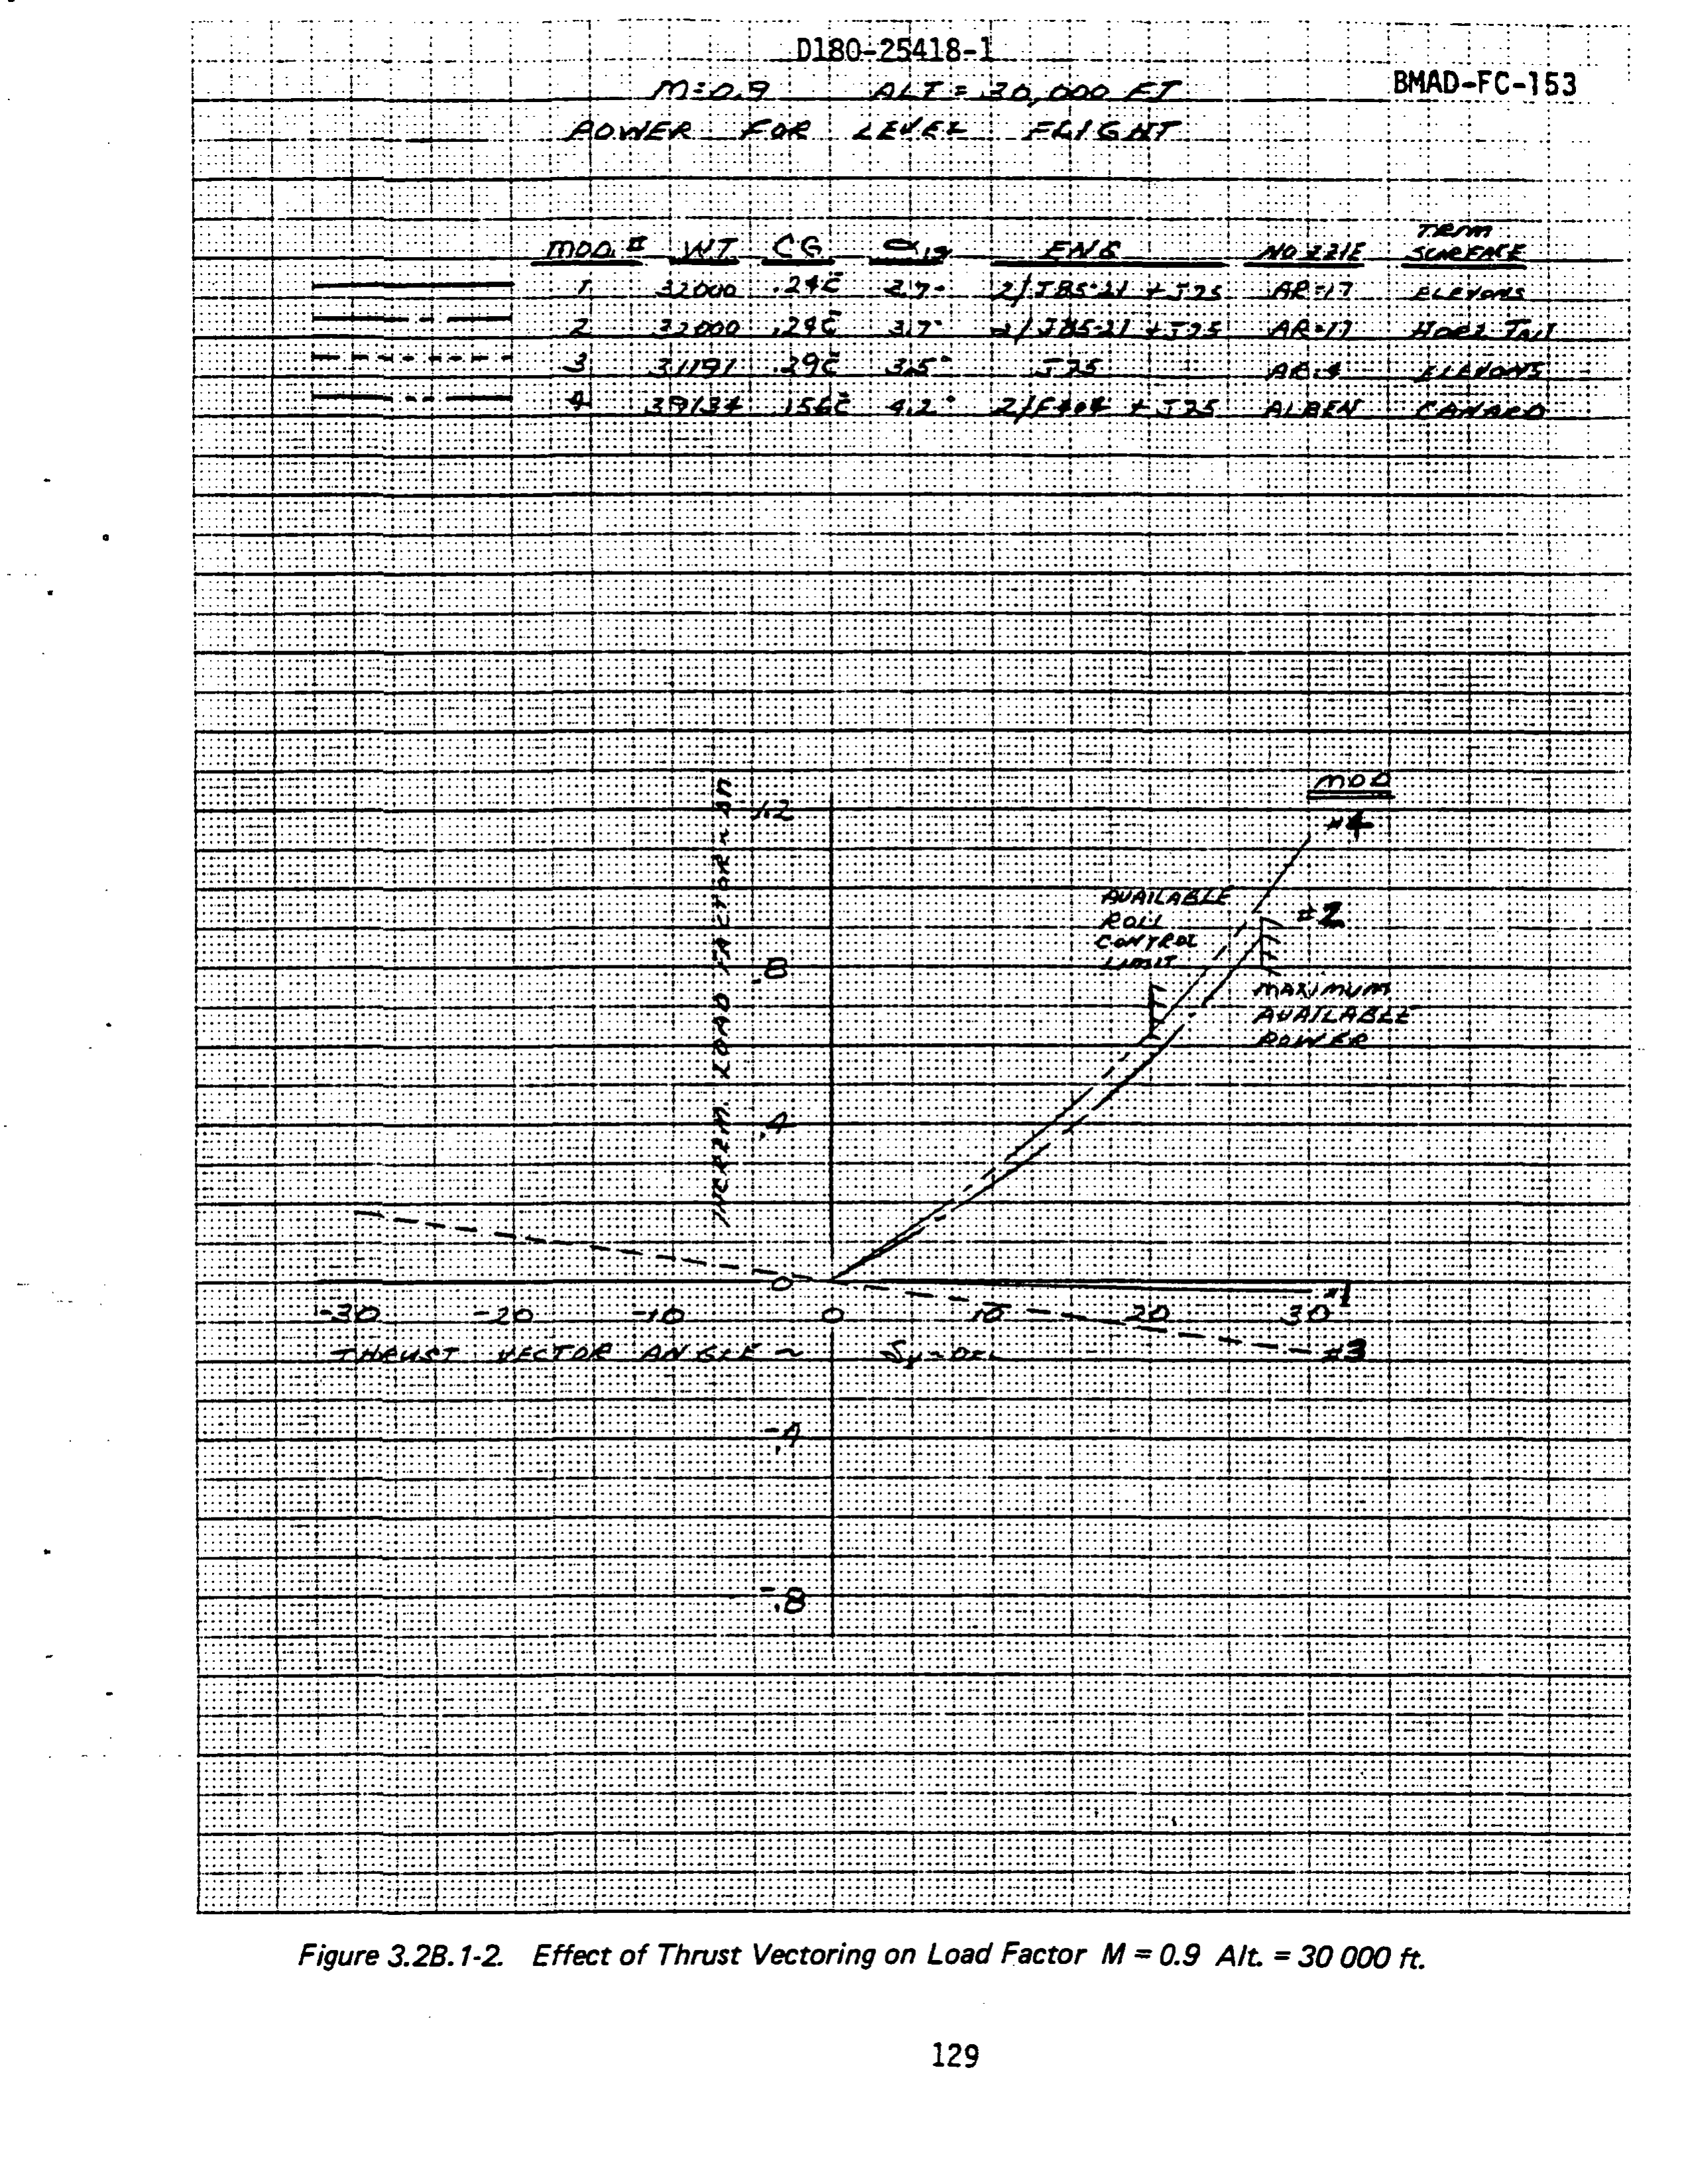 D180-25418-1
BMAD-FC-153
M=0.9 ALT = 30,000 FT
POWER FOR LEVEL FLIGHT
MOD. # WT CG α1g ENG NOZZLE TRIM SURFACE
1 32000 .24c̄ 2/J85-21 + J75 AR=17 ELEVONS
2 32000 .24c̄ 3.7° 2/J85-21 + J75 AR=17 HORZ TAIL
3 31191 .29c̄ 3.5° J75 AR=4 ELEVONS
4 39134 .156c̄ 4.2° 2/F404 + J75 ALBEN CANARD
MOD
1.2
#4
AVAILABLE
ROLL
CONTROL
LIMIT
#2
.8
MAXIMUM
AVAILABLE
POWER
INCREM. LOAD FACTOR ~ ΔN
.4
0
#1
-30 -20 -10 0 10 20 30
THRUST VECTOR ANGLE ~ δv
#3
-.4
-.8
Figure 3.2B.1-2. Effect of Thrust Vectoring on Load Factor M = 0.9 Alt. = 30 000 ft.
129